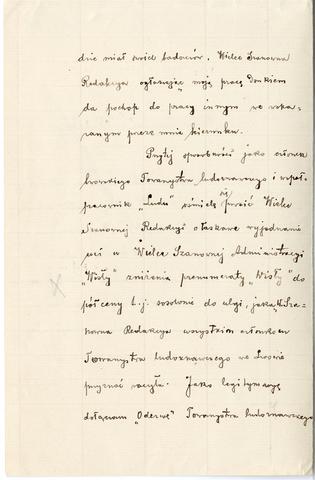 dzie miał swoich badaczów. Wielce Szanowna
Redakcya ogłaszając moją pracę drukiem
da pochop do pracy innym we wska-
zanym przeze mnie kierunku.
Przytej sposobności jako członek
lwowskiego Towarzystwa ludoznawczego i współ-
pracownik „Ludu" ośmielę się prosić Wielce
Szanownej Redakcyi o łaskawe wyjednanie
mi w Wielce Szanownej Administracyi
„Wisły" zniżenia prenumeraty „Wisły" do
pół ceny t. j. stosownie do ulgi, jaką W. Sza-
nowna Redakcya wszystkim członkom
Towarzystwa ludoznawczego we Lwowie
przyznać raczyła. Jako legitymacyę
dołączam „Odezwę" Towarzystwa ludoznawczego